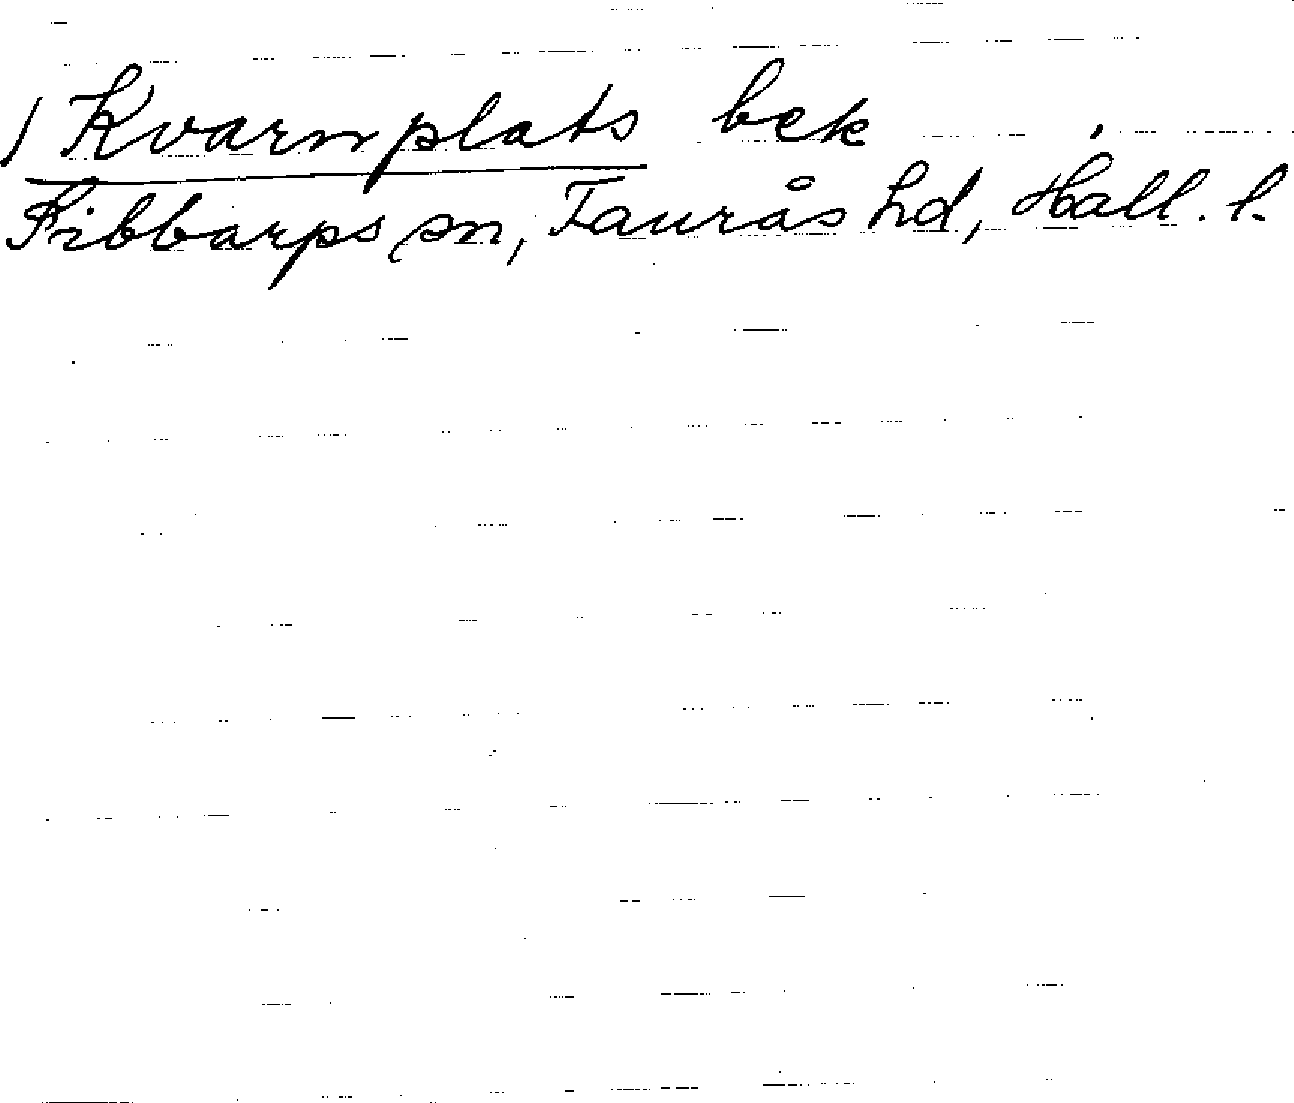 / Kvarnplats bek
Sibbarps sn, Faurås hd, Hall. l.